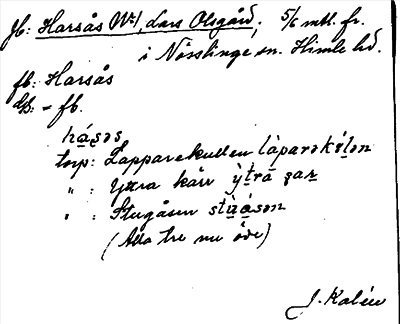 Jb: Harsås No 1, Lars Olsgård; 5/6 mtl. fr.
i Nösslinge sn. Himle hd.
fb: Harsås
dfs: - fb.
hásəs
torp: Lapparekullen làparək
" : Yttra kärr ỳtrā
" : Stugåsen
(Alla tre nu öde)
J. Kalén